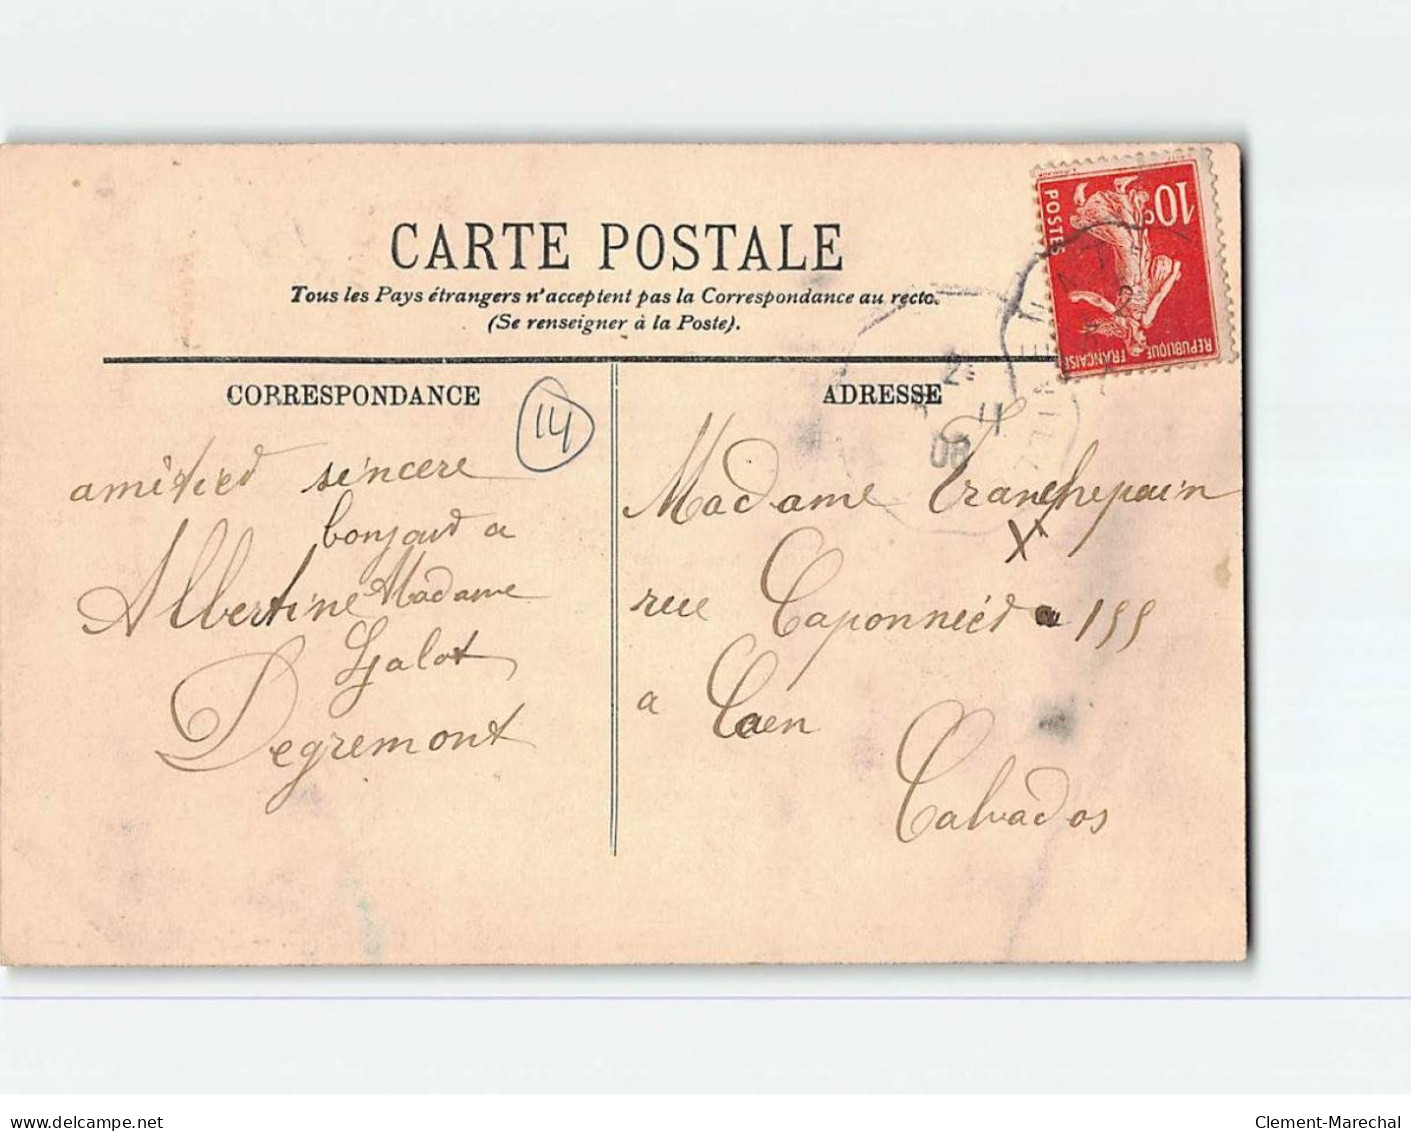 CARTE POSTALE
Tous les Pays étrangers n'acceptent pas la Correspondance au recto.
(Se renseigner à la Poste).
CORRESPONDANCE
14
amitied sincere
bonjour a
Albertine Madame
Galot
Degremont
ADRESSE
Madame Tranchepain
X
rue Caponnied 155
a Caen
Calvados
10c
POSTES
REPUBLIQUE FRANÇAISE
21
11
08
delcampe.net
Clement-Marechal